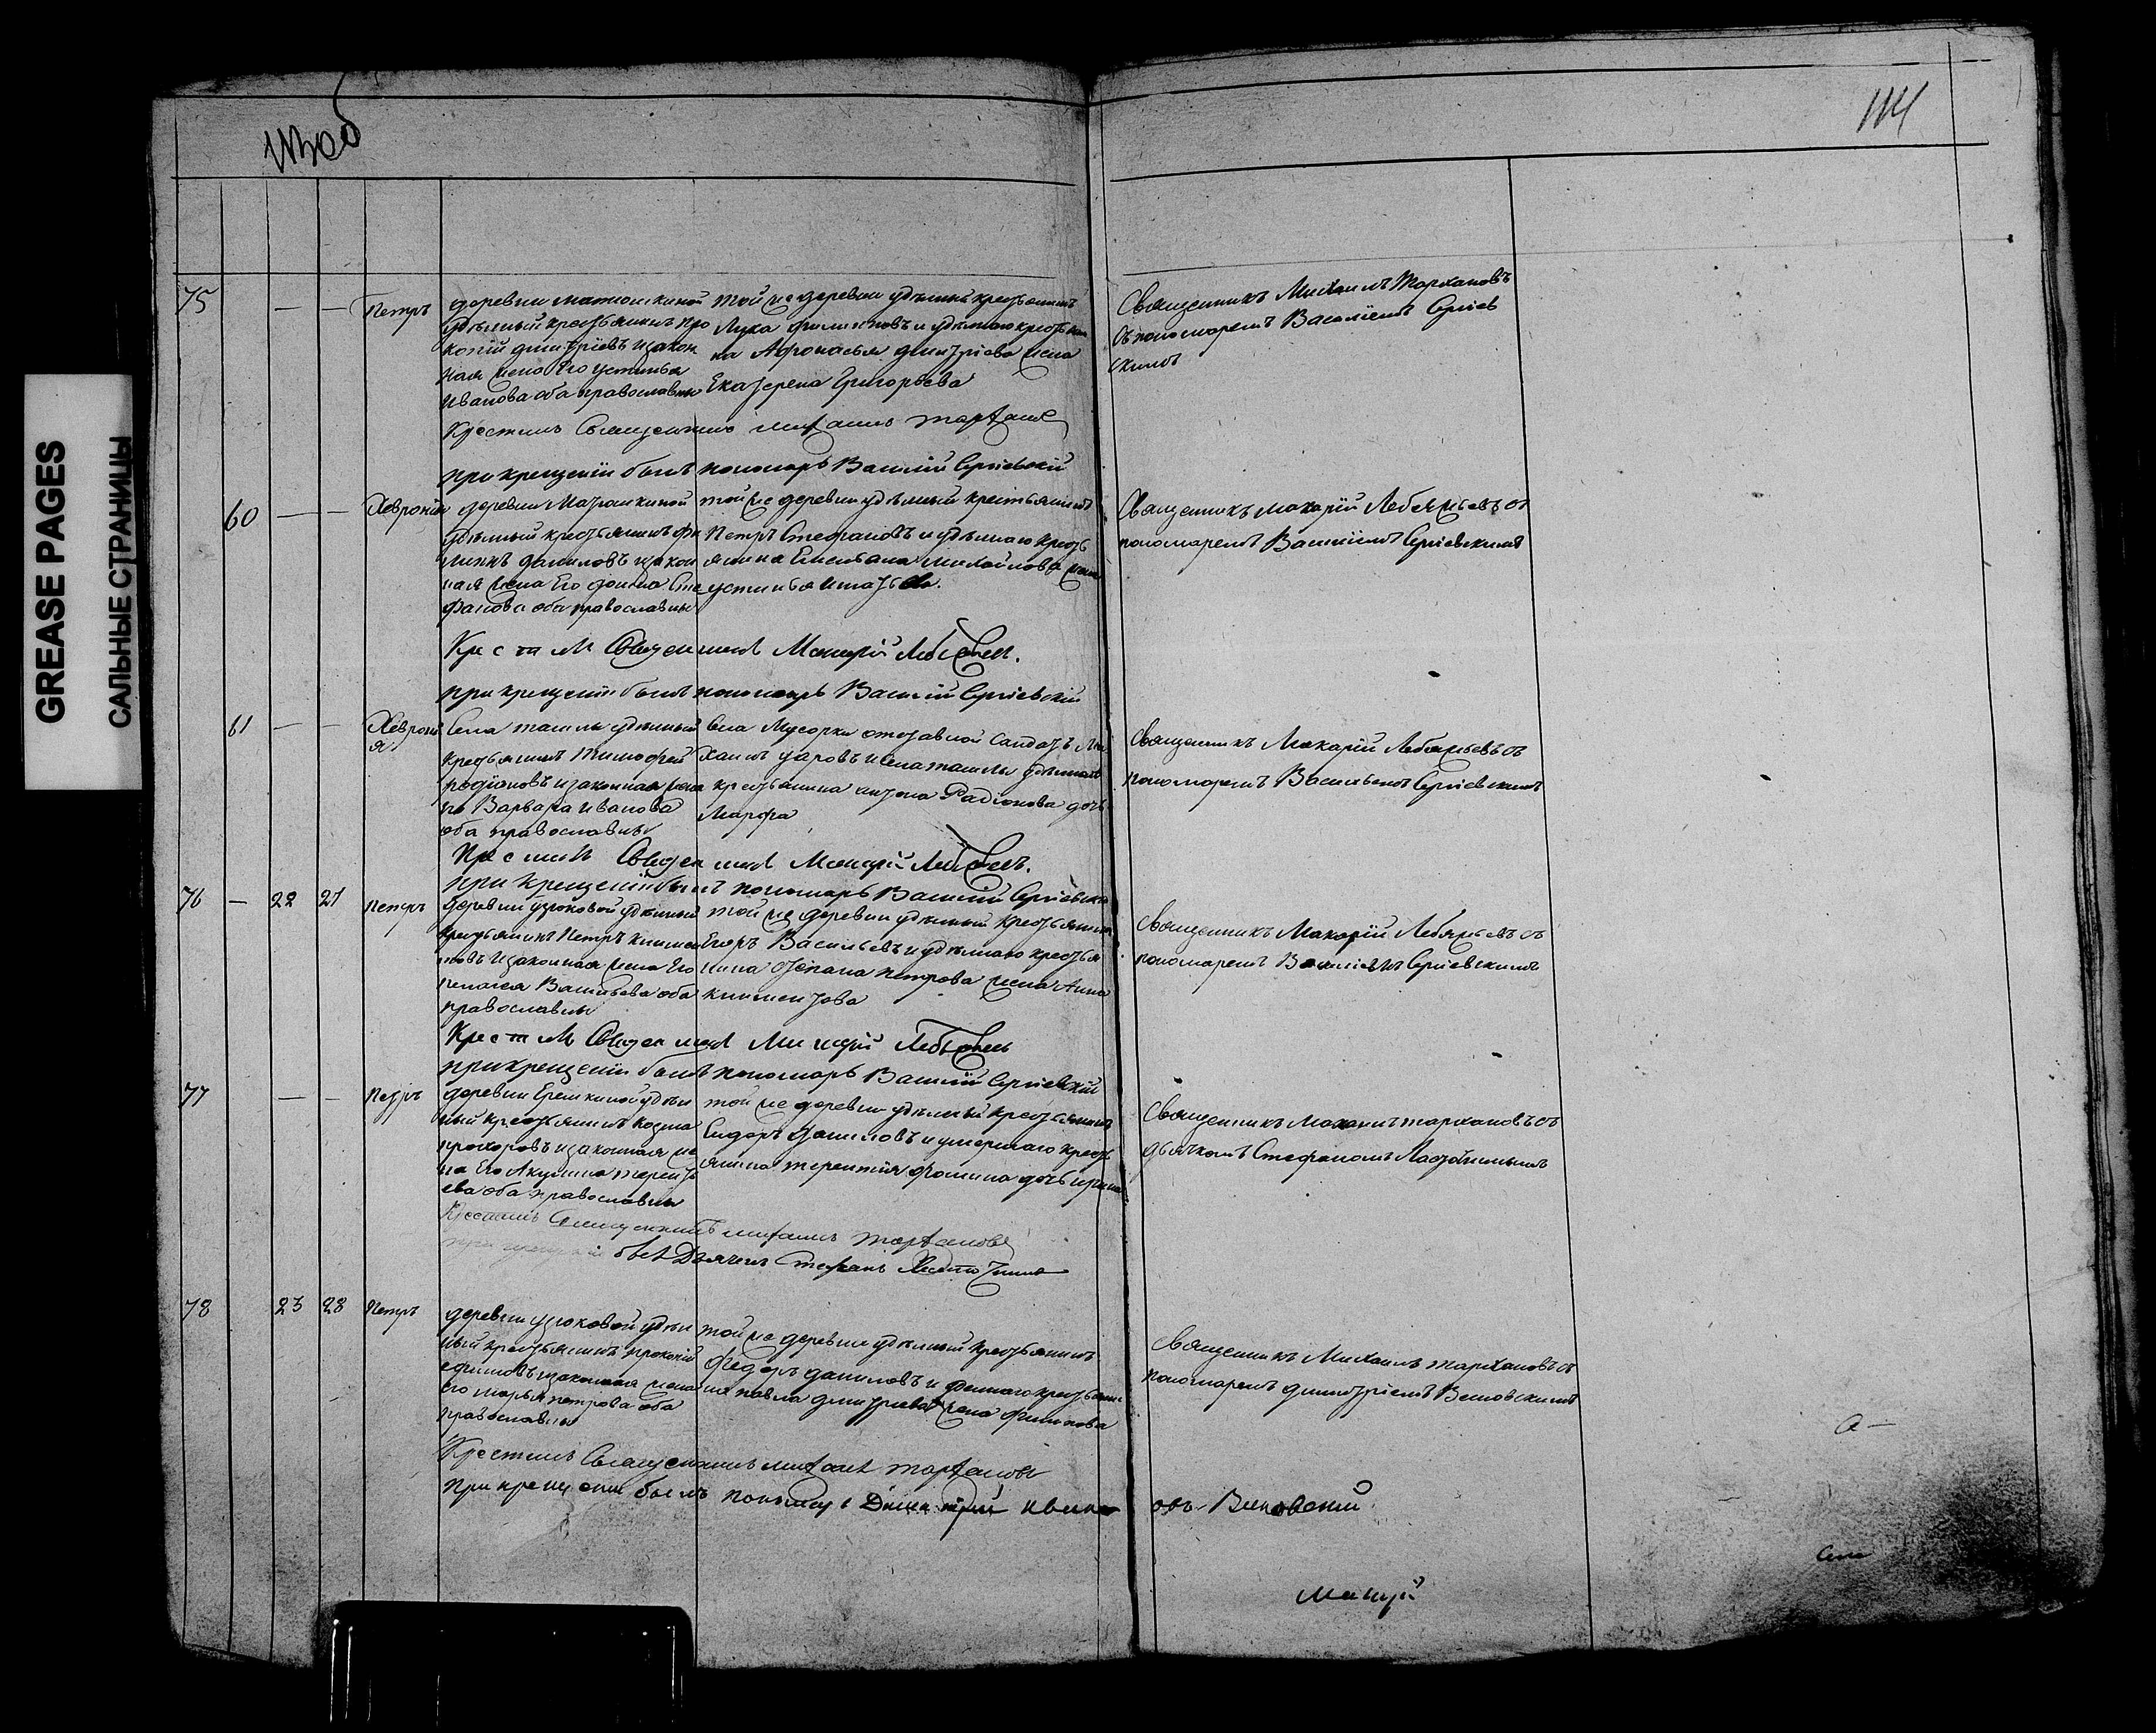 114
GREASE PAGES
САЛЬНЫЕ СТРАНИЦЫ
75 — — Петръ
деревни матюшкиной
удѣльный крестьянинъ про
копій дмитріевъ изакон
ная жена Его устинья
Иванова оба православны
той же деревни удѣльный крестьянинъ
Лука филиповъ и удѣльнаго крестьяни
на Афонасья дмитріева жена
Екатерена Григорьева
Священникъ Михаилъ Тархановъ
съ пономаремъ Василіемъ Сергіев
скимъ
Крестилъ Священникъ михаилъ тархановъ
при крещеніи былъ пономарь Василій Сергіевскій
60 — — Хевронія
деревни Матюшкиной
удѣльный крестьянинъ фи
липъ даниловъ изакон
ная жена Его фоина Сте
фанова оба православны
той же деревни удѣльный крестьянинъ
Петръ Стефановъ и удѣльнаго кресть
янина Емельяна михайлова жена
устинья игнатьева
Священникъ макарій Лебяжьевъ съ
пономаремъ Василіемъ Сергіевскимъ
Крестилъ Священникъ Макарій Лебяжьевъ.
при крещеніи былъ пономарь Василій Сергіевскій
61 — — Хеврони
я
Села ташлы удѣльный
крестьянинъ Тимофей
родіоновъ изаконная жена
его Варвара иванова
оба православны
Села Мусорки отставной салдатъ Ми
хаилъ уаровъ и села ташлы удѣльнаго
крестьянина антона Радіонова дочь
Марфа
Священникъ Макарій Лебяжьевъ съ
пономаремъ Васильемъ Сергіевскимъ
Крестилъ Священникъ Макарій Лебяжьевъ.
при крещеніи былъ пономарь Василій Сергіевскій
76 — 22 27 Петръ
деревни узюковой удѣльный
крестьянинъ Петръ климен
товъ изаконная жена Его
пелагея Васильева оба
православны
той же деревни удѣльный крестьянинъ
Егоръ Васильевъ и удѣльнаго крестья
нина степана петрова жена Анна
климентова
Священникъ Макарій Лебяжьевъ съ
пономаремъ Василіемъ Сергіевскимъ
Крестилъ Священникъ Макарій Лебяжьевъ
при крещеніи былъ пономарь Василій Сергіевскій
77 — — Петръ
деревни Еремкиной удѣль
ный крестьянинъ козма
прохоровъ изаконная же
на Его Акулина терент
ева оба православны
той же деревни удѣльный крестьянинъ
Сидоръ даниловъ и умершаго кресть
янина терентія фомина дочь ирина
Священникъ Михаилъ тархановъ съ
дьячкомъ Стефаномъ
Крестилъ Священникъ михаилъ тархановъ
при крещеніи былъ Дьячекъ Стефанъ
78 23 28 Петръ
деревни узюковой удѣль
ный крестьянинъ прокопій
ефимовъ изаконная жена
его марья петрова оба
православны
той же деревни удѣльный крестьянинъ
федоръ даниловъ и удѣльнаго крестьяни
на павла дмитріева жена филипова
Священникъ Михаилъ тархановъ съ
пономаремъ димитріемъ Веновскимъ
Крестилъ Священникъ михаилъ тархановъ
при крещеніи былъ пономарь Димитрій
Веновскій
Макарій
Села